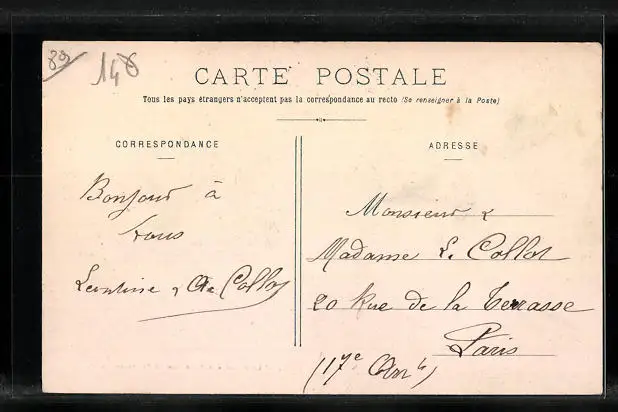 89
148
CARTE POSTALE
Tous les pays étrangers n'acceptent pas la correspondance au recto (Se renseigner à la Poste)
CORRESPONDANCE
ADRESSE
Bonjour à
tous
Leontine & Collot
Monsieur &
Madame L. Collot
20 Rue de la Terrasse
Paris
(17e Arrt)